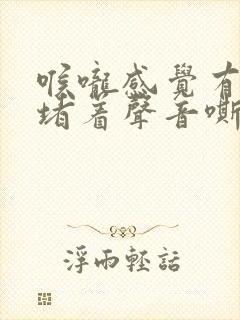 喉嚨感覺有
堵着聲音嘶
浮雨輕話